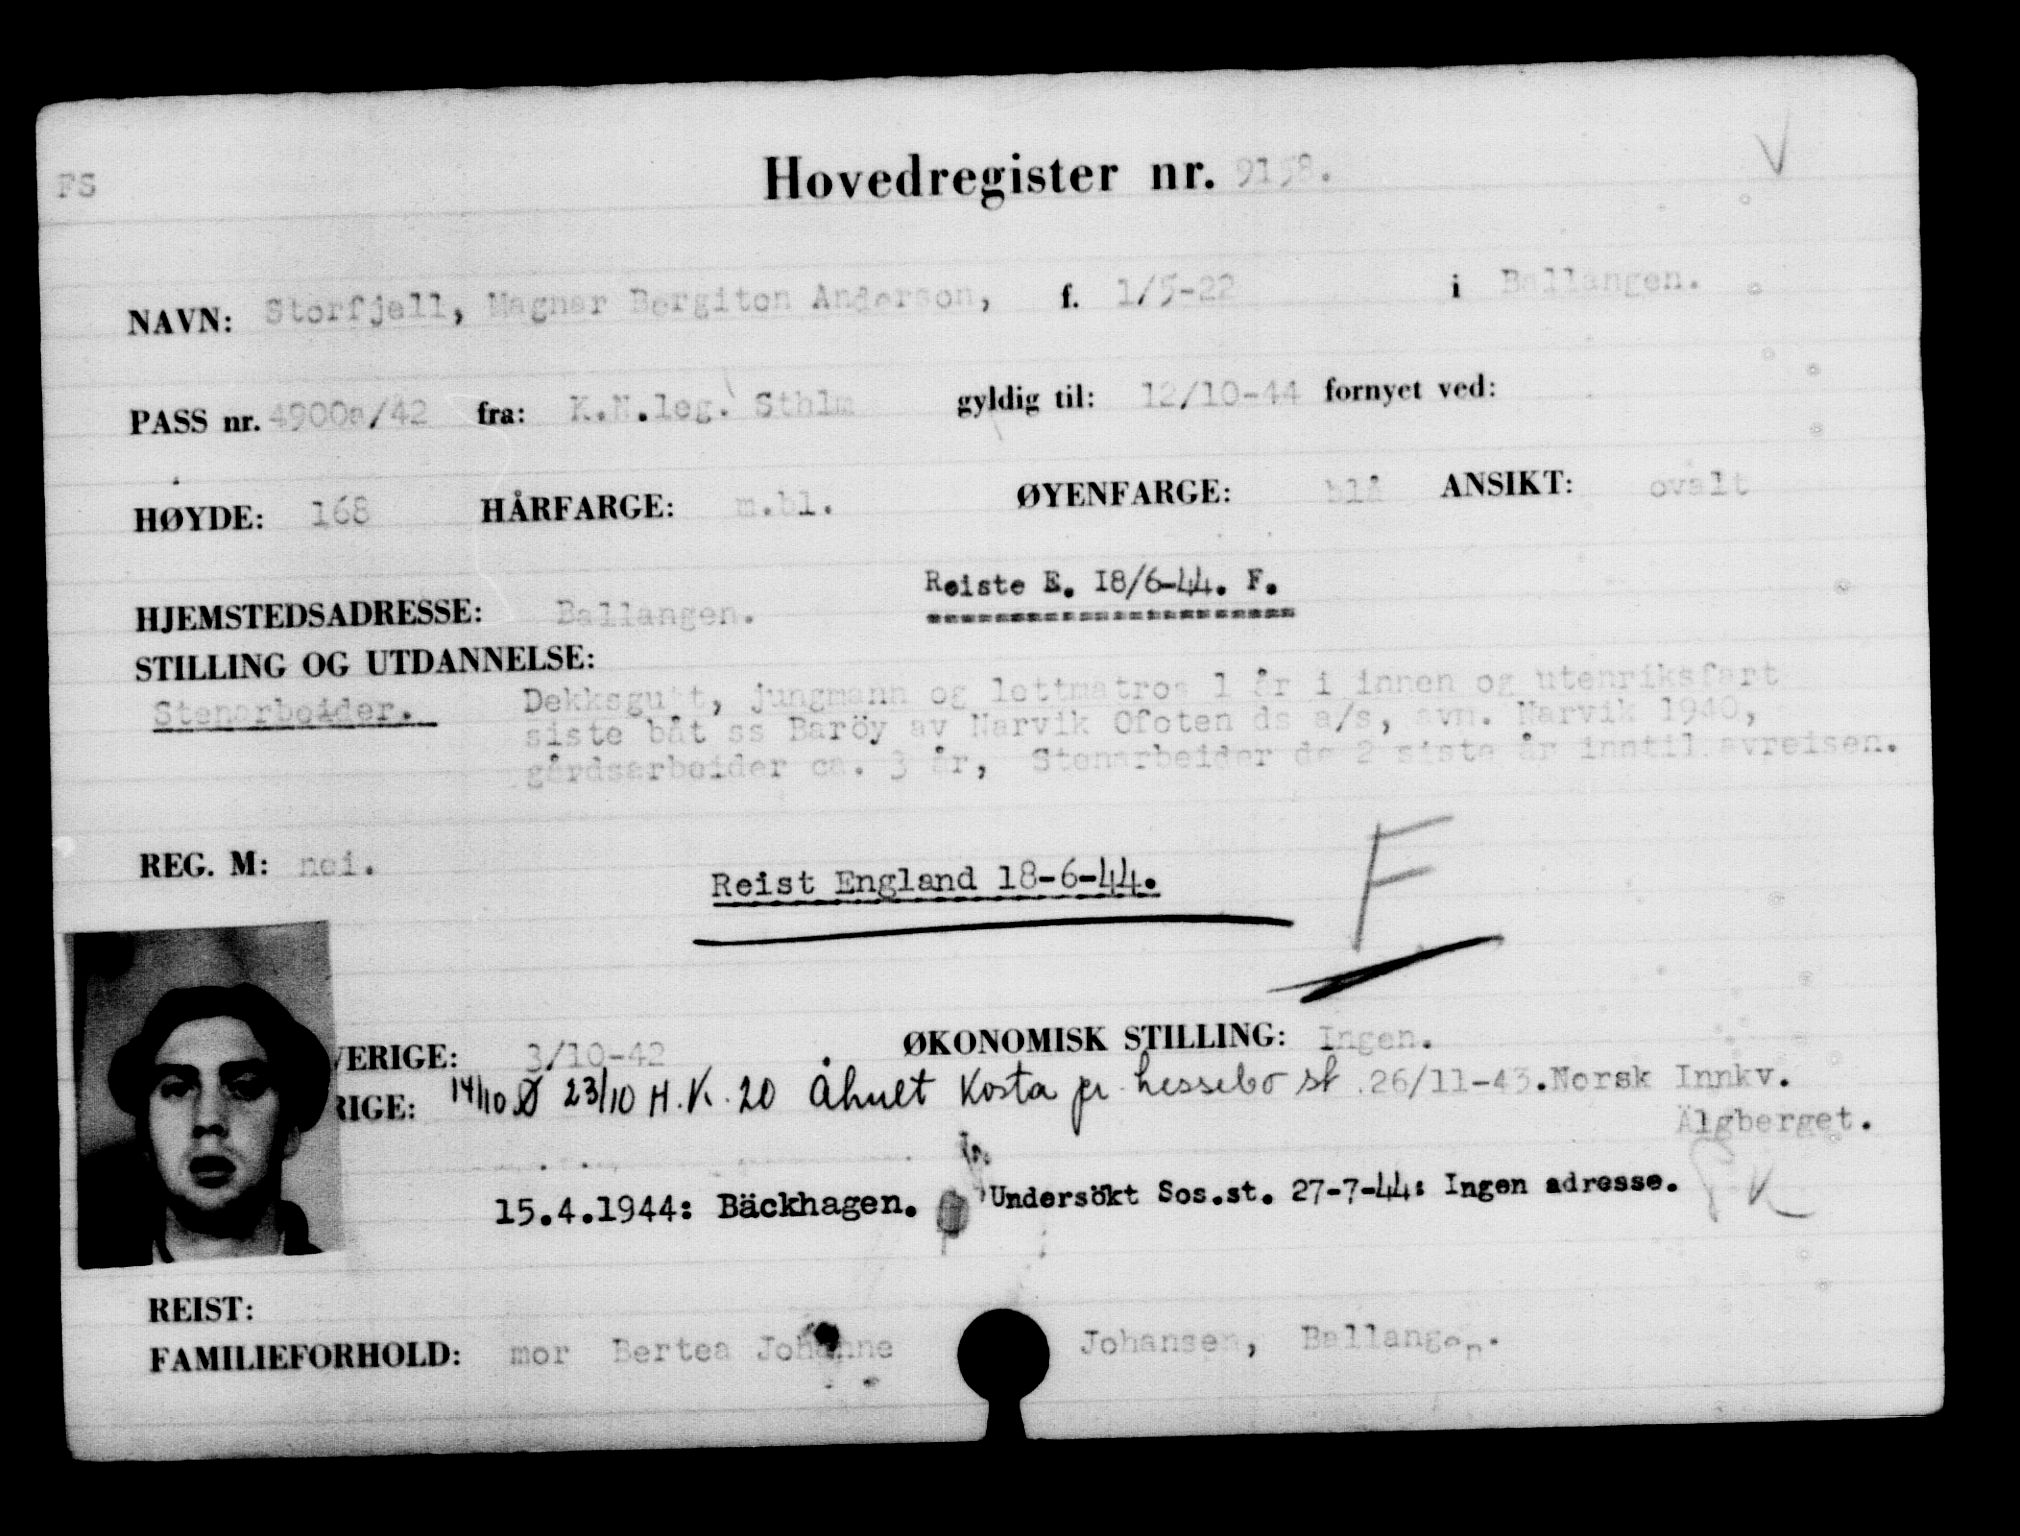 FS
Hovedregister nr. 9158.
NAVN: Storfjell, Magnar Bergiton Anderson, f. 1/5-22 i Ballangen.
PASS nr. 4900a/42 fra: K.N.leg. Sthlm gyldig til: 12/10-44 fornyet ved:
HØYDE: 168 HÅRFARGE: m.bl. ØYENFARGE: blå ANSIKT: ovalt
Reiste E. 18/6-44. F.
HJEMSTEDSADRESSE: Ballangen.
STILLING OG UTDANNELSE:
Stenarbeider.
Dekksgutt, jungmann og lettmatros 1 år i innen og utenriksfart
siste båt ss Baröy av Narvik Ofoten ds a/s, avm. Narvik 1940,
gårdsarbeider ca. 3 år, Stenarbeider de 2 siste år inntil avreisen.
REG. M: nei.
Reist England 18-6-44.
F
VERIGE: 3/10-42 ØKONOMISK STILLING: Ingen.
RIGE: 14/10 Ø 23/10 H.K. 20 Åhult Kosta pr Lessebo st .26/11-43.Norsk Innkv.
Älgberget.
15.4.1944: Bäckhagen. Undersökt Sos.st. 27-7-44: Ingen adresse.
K
REIST:
FAMILIEFORHOLD: mor Bertea Johanne Johansen, Ballangen.